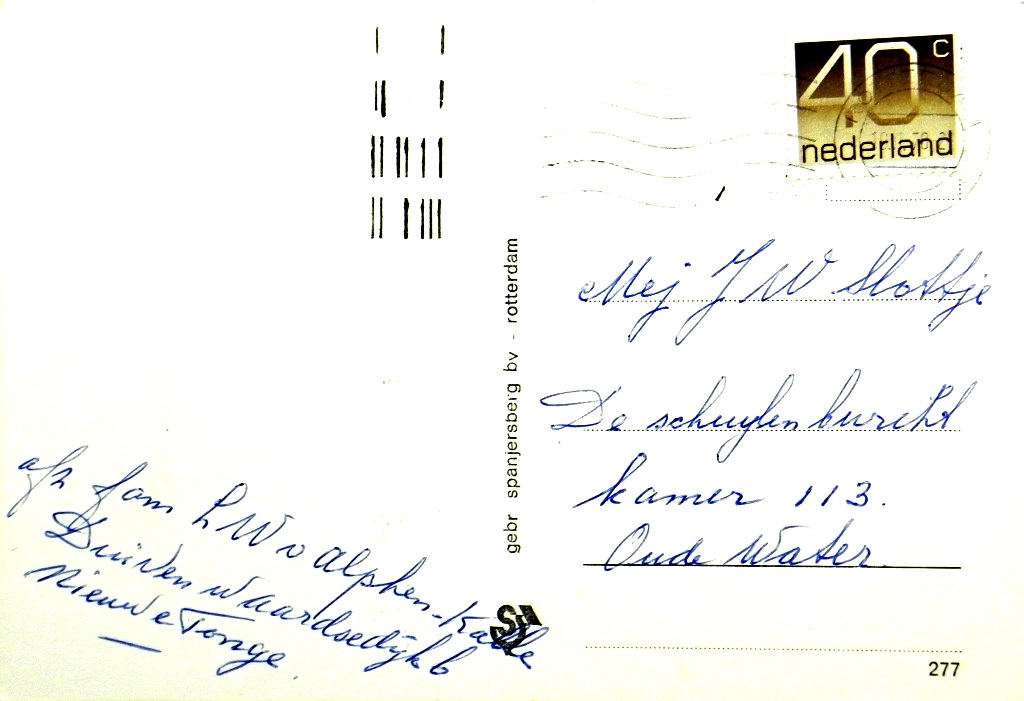 40 c
nederland
Mej J W Slottje
De schuylenburcht
kamer 113.
Oude Water.
afz fam L W v Alphen-Kaa
Duivenwaardsedijk 6
Nieuwe Tonge
gebr spanjersberg bv - rotterdam
277